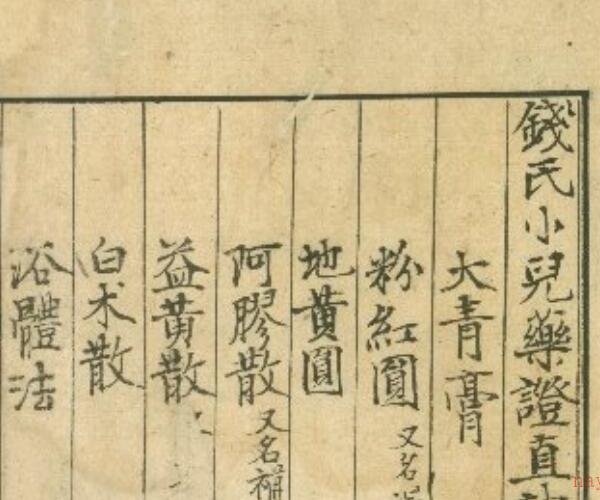 錢氏小兒藥證直
大青膏
粉紅圓 又名
地黃圓
阿膠散 又名補
益黃散
白朮散
浴體法
nay